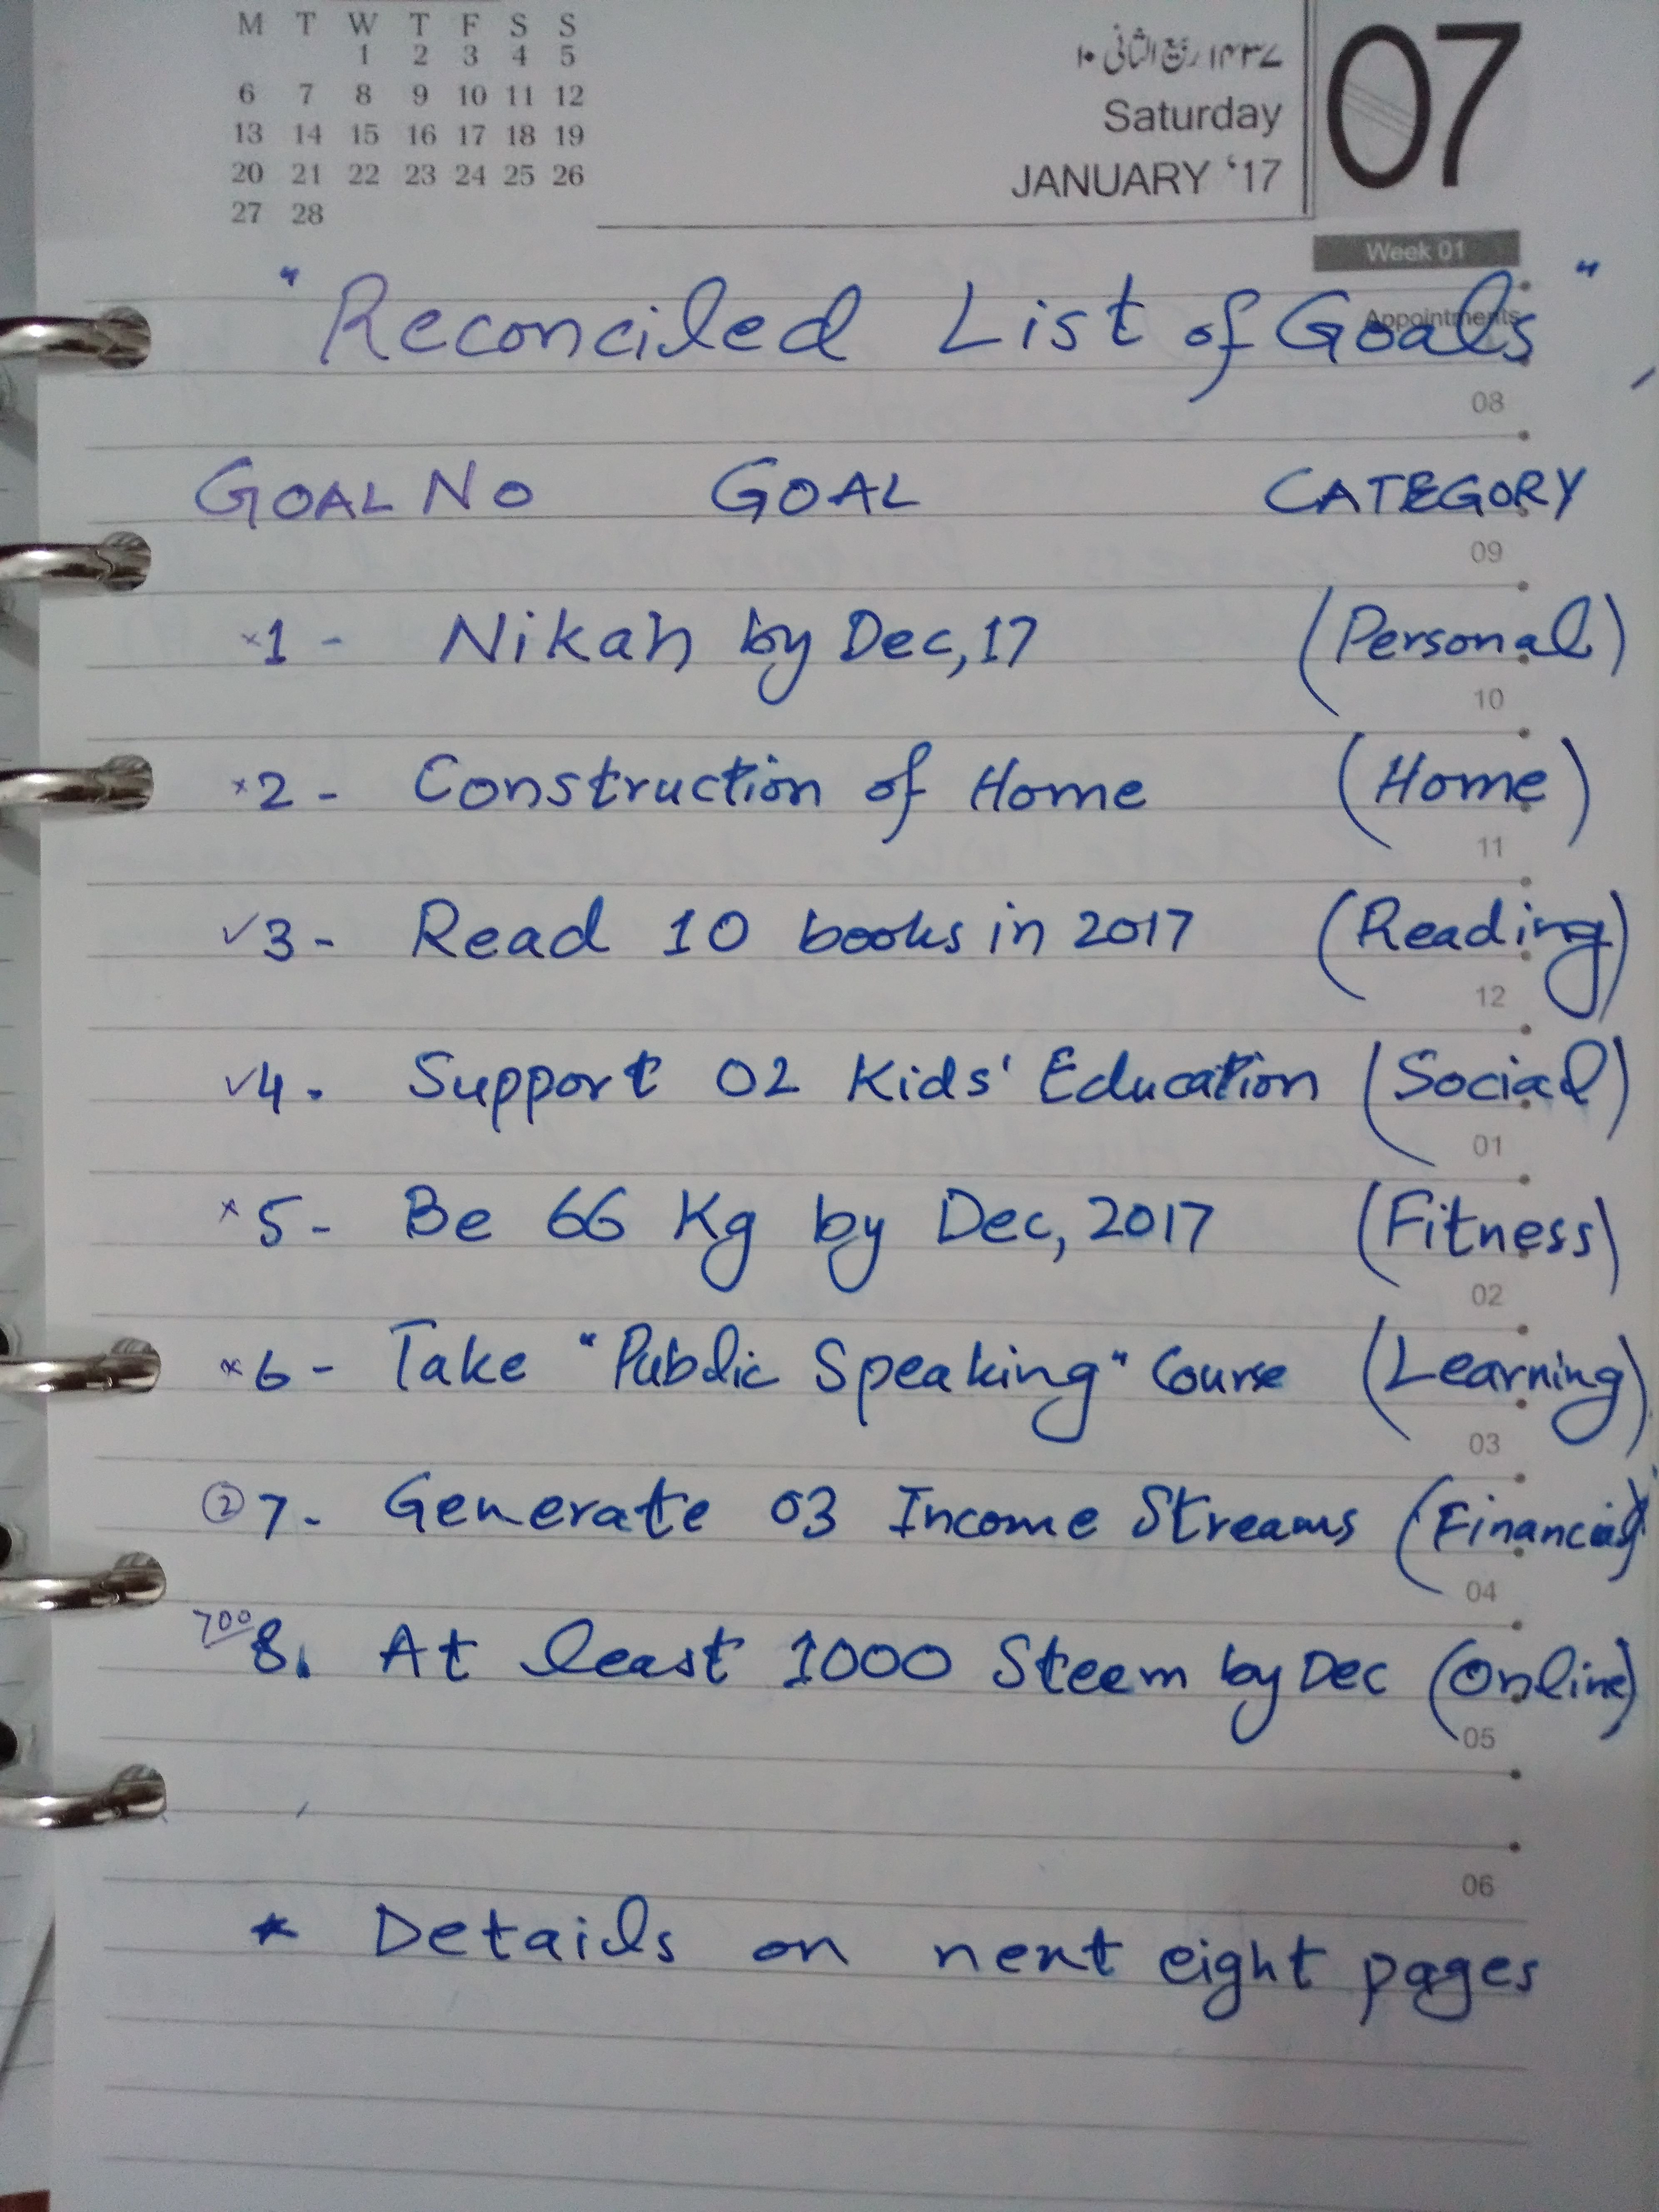 M T W T F S S
1 2 3 4 5
6 7 8 9 10 11 12
13 14 15 16 17 18 19
20 21 22 23 24 25 26
27 28
۱۰ ربیع الثانی ۱۴۳۷
Saturday
JANUARY ‘17
07
Week 01
Appointments
"Reconciled List of Goals"
08
GOAL NO GOAL CATEGORY
09
×1 - Nikah by Dec,17 (Personal)
10
×2 - Construction of Home (Home)
11
✓3 - Read 10 books in 2017 (Reading)
12
✓4. Support 02 Kids' Education (Social)
01
×5 - Be 66 Kg by Dec, 2017 (Fitness)
02
×6 - Take "Public Speaking" Course (Learning)
03
②7 - Generate 03 Income Streams (Financial)
04
700 8. At least 1000 Steem by Dec (Online)
05
06
* Details on next eight pages